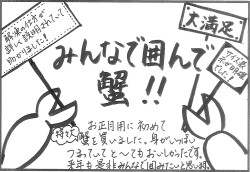 解凍の仕方が
詳しく説明されていて
助かりました!
大満足!
サイズ表
がわかりやすい
でした!
みんなで囲んで
蟹!!
特大
お正月用に初めて
蟹を買いました。身がいっぱい
つまっていてと〜てもおいしかったです。
来年も是非みんなで囲みたいと思います。